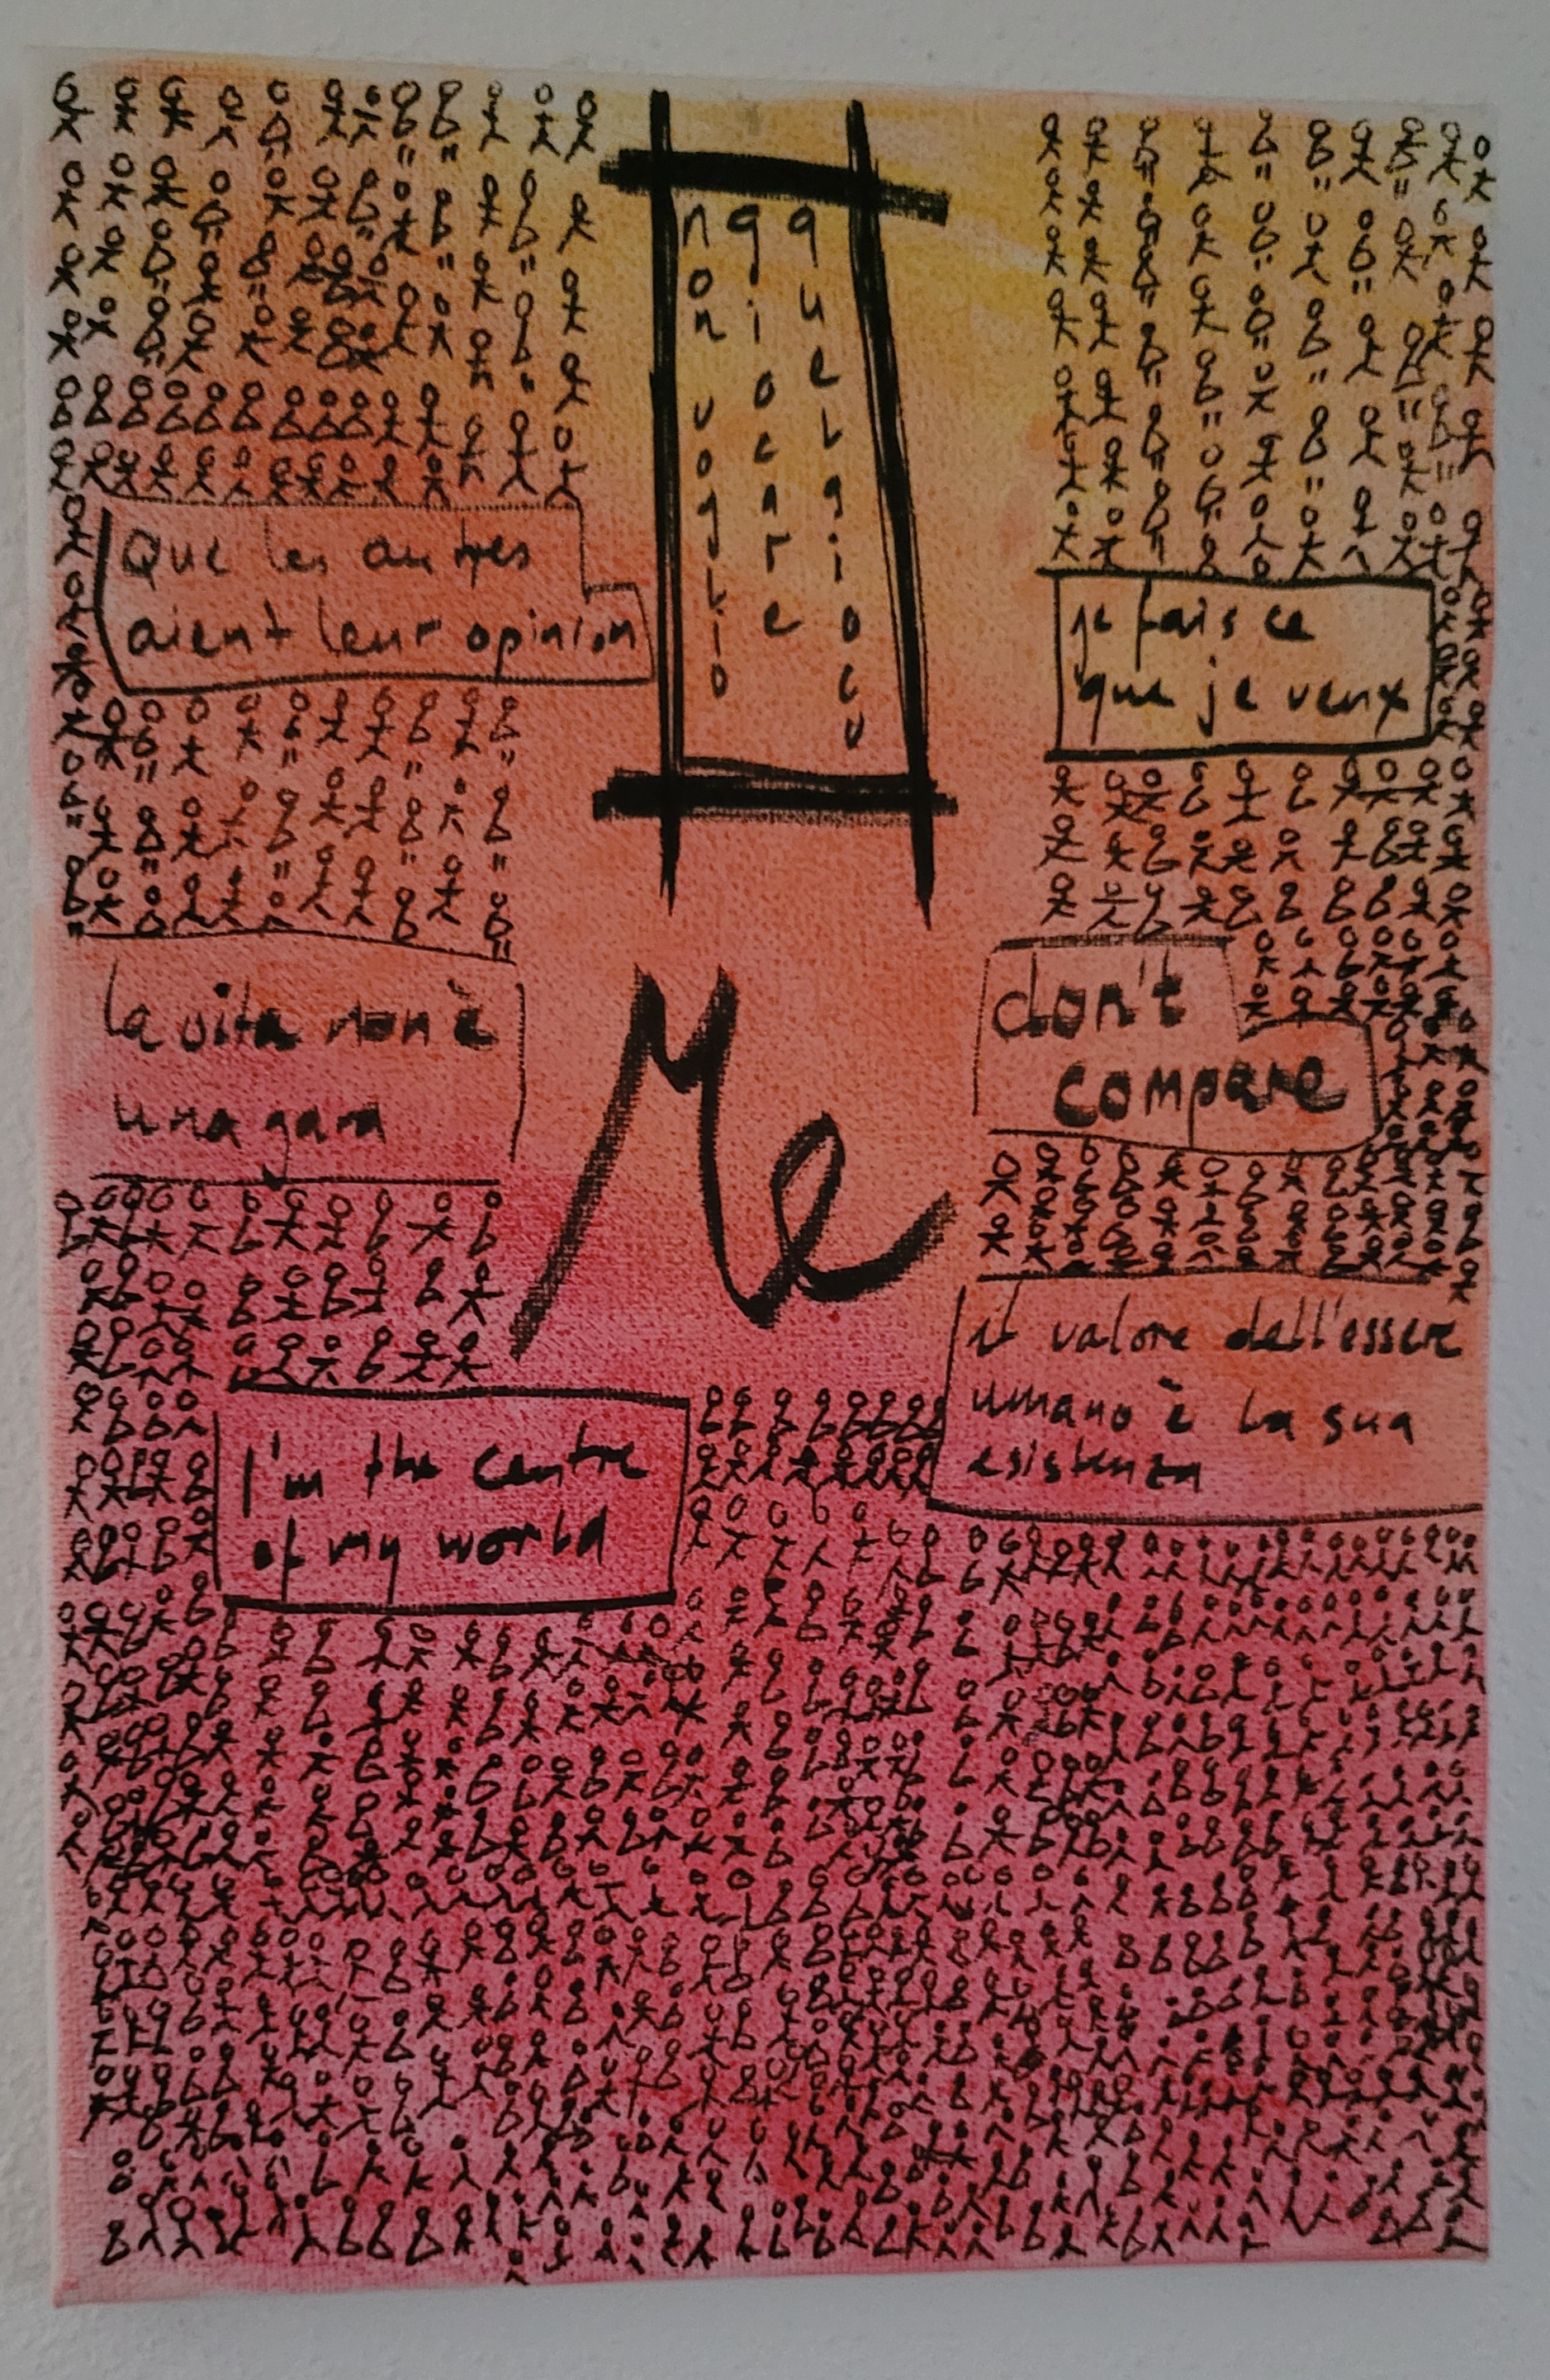 non voglio
giocare
quel gioco
Que les autres
aient leur opinion
je fais ce
que je veux
la vita non è
una gara
Me
don't
compare
il valore dell'essere
umano è la sua
esistenza
I'm the centre
of my world